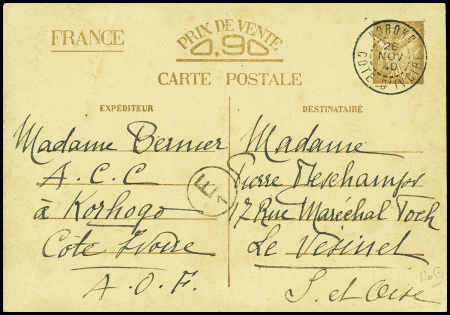 FRANCE
PRIX DE VENTE
0,90
CARTE POSTALE
26
NOV
40
CÔTE D'IVOIRE
EXPÉDITEUR
Madame Bernier
A.C.C
à Korhogo
Côte Ivoire
A.O.F.
DESTINATAIRE
Madame
Pierre Deschamps
17 Rue Maréchal Foch
Le Vésinet
S. et Oise